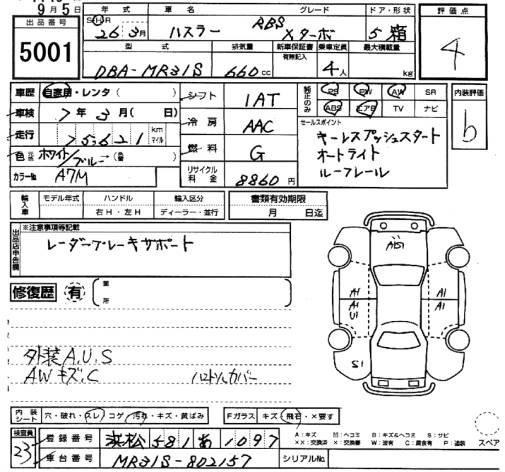 9月5日
出品番号
5001
年式 車名 グレード ドア・形状
S H R 26年3月 ハスラー RBS Xターボ 5 箱
型式 排気量 新車保証書 乗車定員 最大積載量
DBA-MR31S 660cc 有無記入 4人 kg
評価点
4
車歴 自家用・レンタ( )
車検 7年3月( 日)
走行 75621 km マイル
色 ホワイト/ブルー
カラーNo A7M
シフト 1AT
冷房 AAC
燃料 G
リサイクル料金 8860円
純正のみ PS PW AW SR
ABS エアB TV ナビ
セールスポイント
キーレスプッシュスタート
オートライト
ルーフレール
内装評価
b
輸入車 モデル年式 ハンドル 輸入区分
右H・左H ディーラー・並行
書類有効期限
月 日迄
出品店申告欄
※注意事項等記載
レーダーブレーキサポート
修復歴 有 箇所
外装A,U,S
AWキズ,C ハロトソカバー
A1S1
A1 A1
A1 A1
U1
S1
内装シート 穴・破れ・スレ・コゲ・汚れ・キズ・黄ばみ
Fガラス キズ・飛石・×要す
検査員 23
登録番号 浜松 581 あ 1097
車台番号 MR31S-802157
シリアルNo.
A:キズ U:ヘコミ B:キズ&ヘコミ S:サビ
XX:交換済 X:要交換 W:波有 C:腐食有 P:塗装
スペア